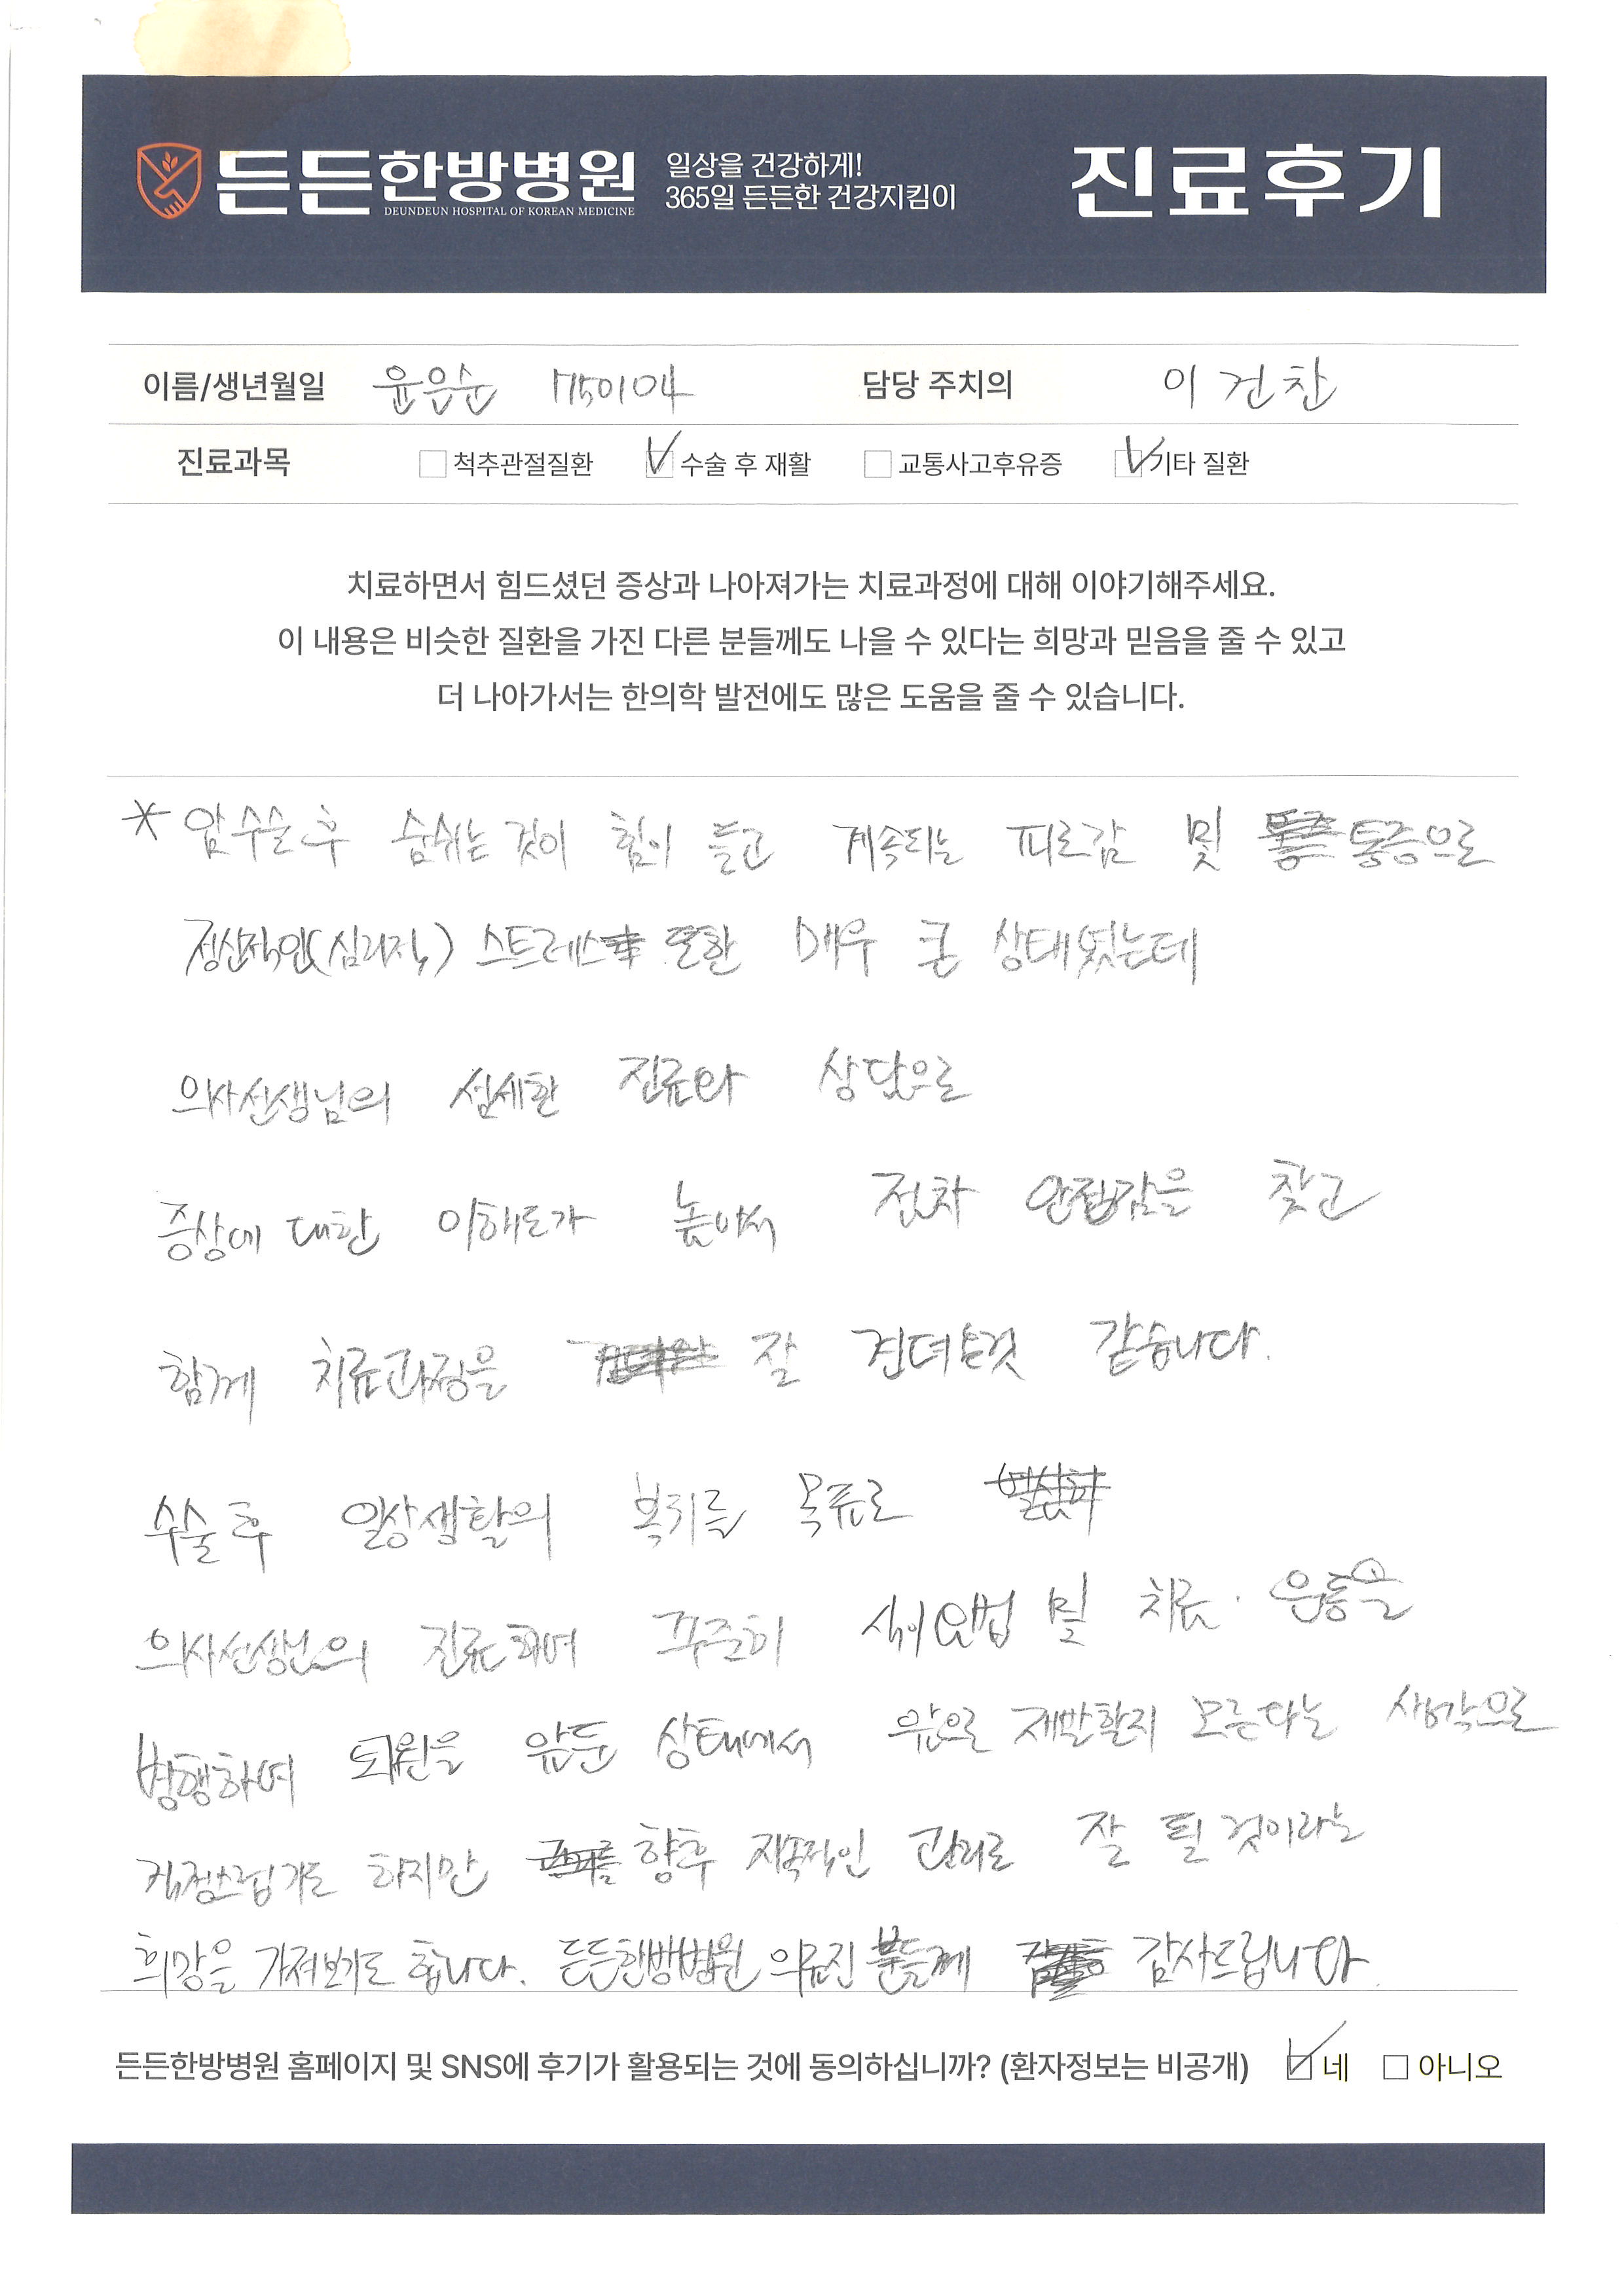 든든한방병원 일상을 건강하게! 진료후기
DEUNDEUN HOSPITAL OF KOREAN MEDICINE 365일 든든한 건강지킴이
이름/생년월일 윤은순 750104 담당 주치의 이건찬
진료과목 척추관절질환 수술 후 재활 교통사고후유증 기타 질환
치료하면서 힘드셨던 증상과 나아져가는 치료과정에 대해 이야기해주세요.
이 내용은 비슷한 질환을 가진 다른 분들께도 나을 수 있다는 희망과 믿음을 줄 수 있고
더 나아가서는 한의학 발전에도 많은 도움을 줄 수 있습니다.
* 암수술후 숨쉬는 것이 힘이 들고 계속되는 피로감 및 통증으로
정신적인(심리적) 스트레스 또한 매우 큰 상태였는데
의사선생님의 섬세한 진료와 상담으로
증상에 대한 이해도가 높아서 점차 안정감을 찾고
함께 치료과정을 잘 견뎌낸것 같습니다.
수술후 일상생활의 복귀를 목표로
의사선생님의 진료하며 꾸준히 식이요법 및 치료·운동을
병행하며 퇴원을 앞둔 상태에서 앞으로 재발할지 모른다는 생각으로
걱정스럽기도 하지만 향후 지속적인 관리로 잘 될 것이라는
희망을 가져보기도 합니다. 든든한방병원 의료진 분들께 감사드립니다.
든든한방병원 홈페이지 및 SNS에 후기가 활용되는 것에 동의하십니까? (환자정보는 비공개) 네 아니오